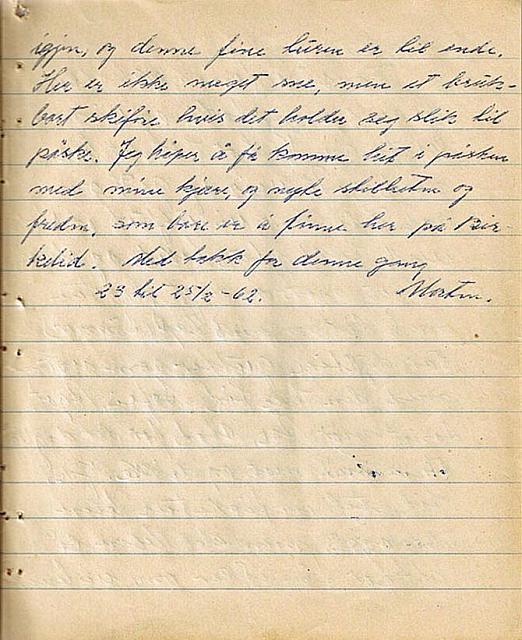 igjen, og denne fine turen er til ende.
Her er ikke meget sne, men et bruk-
bart skiføre hvis det holder seg slik til
påske. Jeg håper å få komme hit i påsken
med mine kjære, og nyte stillheten og
freden, som bare er å finne her på Bir-
kelid. Med takk for denne gang
23 til 25/2 - 62. Morten.